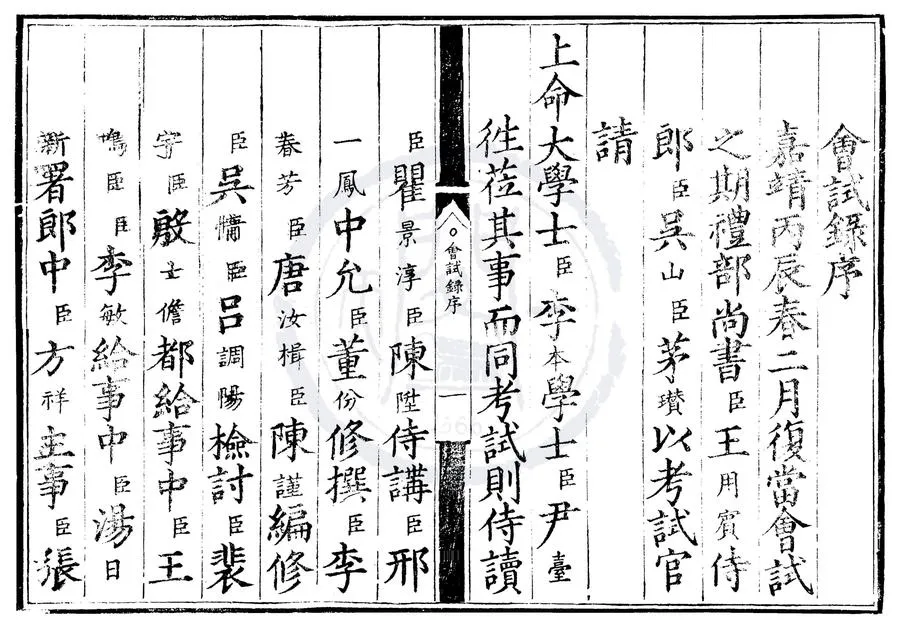 會試錄序
嘉靖丙辰春二月復當會試
之期禮部尚書臣王用賓侍
郎臣吳山臣茅瓚以考試官
請
上命大學士臣李本學士臣尹臺
徃莅其事而同考試則侍讀
會試錄序
一
臣瞿景淳臣陳陞侍講邢
一鳳中允臣董份修撰臣李
春芳臣唐汝楫臣陳謹編修
臣吳情臣呂調陽檢討臣裴
宇臣殷士儋都給事中臣王
鳴臣臣李敏給事中臣湯日
新署郎中臣方祥主事臣張